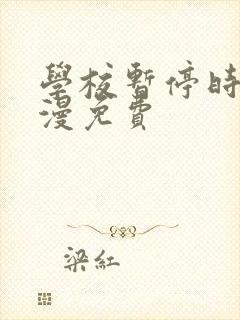 學校暫停時
漫免費
梁紅